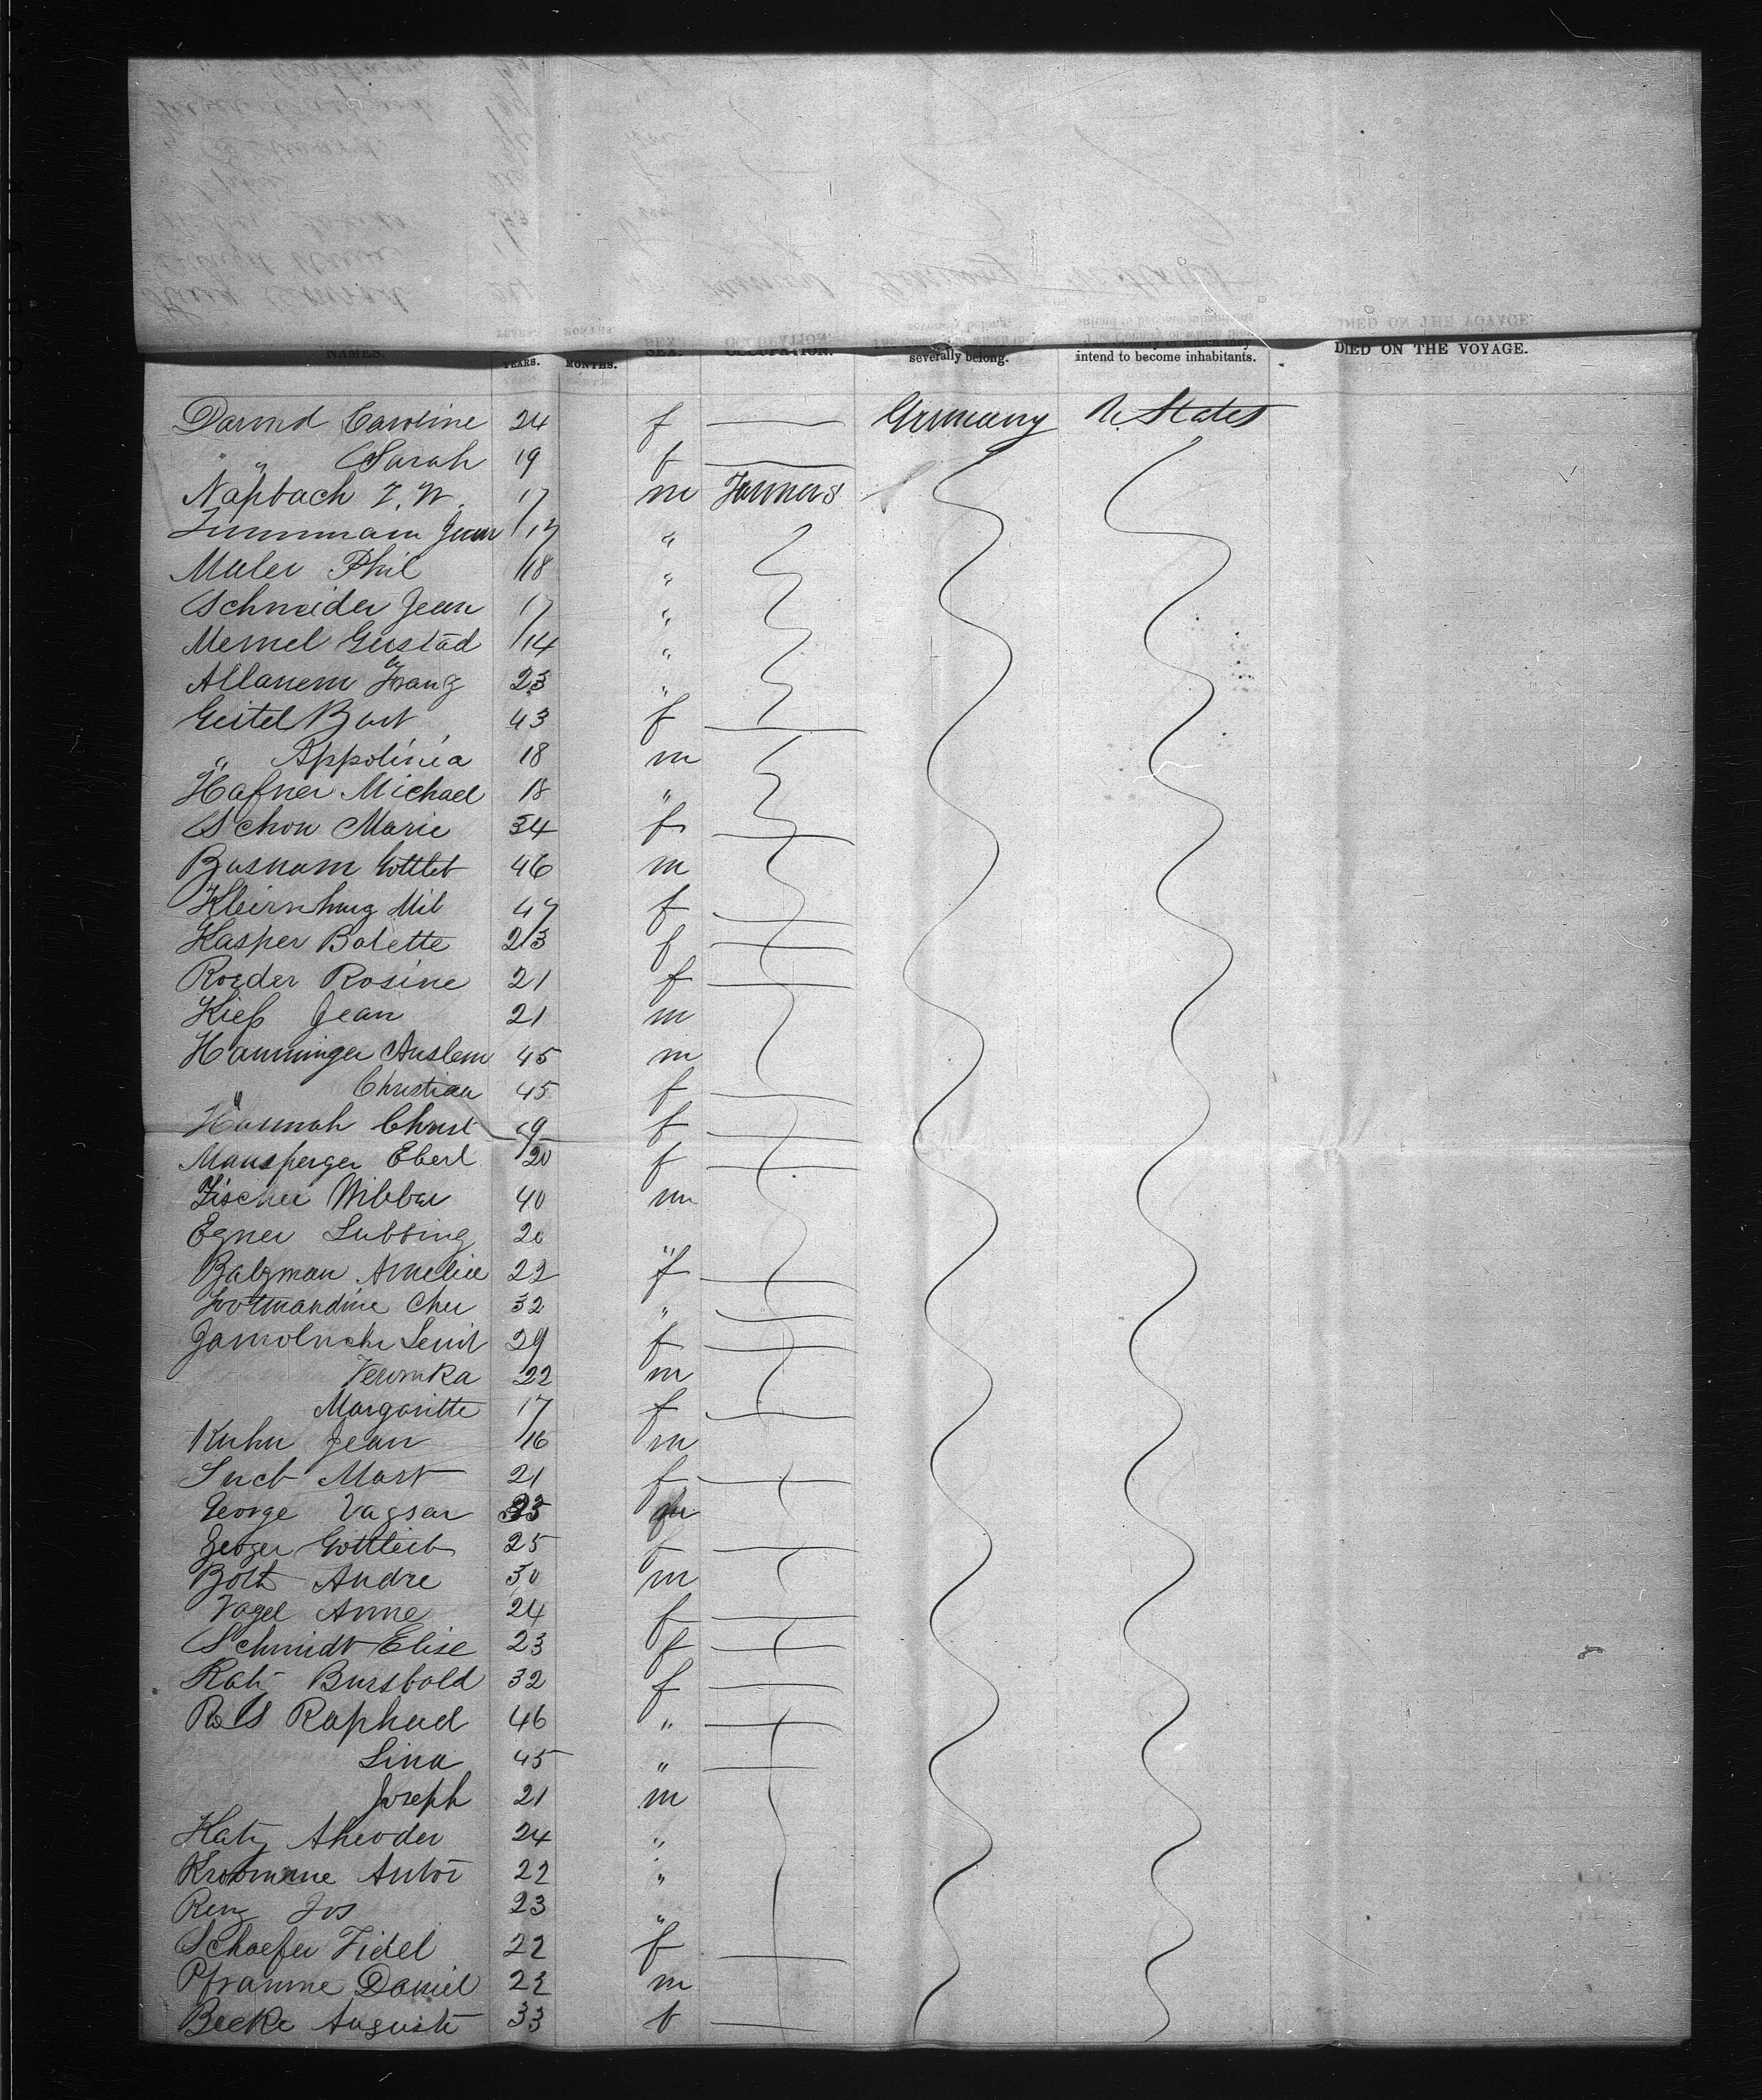 NAMES. YEARS. MONTHS. SEX. OCCUPATION. severally belong. intend to become inhabitants. DIED ON THE VOYAGE.
Darmd Caroline 24 f — Germany U States
" Sarah 19 f —
Nassbach F. W. 17 m Farmers
Zimmmam Jean 17 "
Muler Phil 18 "
Schneider Jean 17 "
Mernel Gustad 14 "
Allanem Franz 23 "
Geitel Bart 43 f —
" Appolinia 18 m
Hafner Michael 18 "
Schon Marie 34 f —
Basnam Gottleb 46 m
Kleirnhung Mil 47 f —
Kasper Bolette 23 f —
Roeder Rosine 21 f —
Kiess Jean 21 m
Hamminger Anslem 45 m
" Christian 45 f —
Hannah Christ 19 f —
Mansperger Eberl 20 f —
Fischer Wilbar 40 m
Egner Lubsing 20 "
Balzman Amelie 22 f —
Chu 32 " —
29 f —
Veronika 22 m
Margaritte 17 f —
Kuhn Jean 16 m
Mart 21 f —
George Vagsar m
Geoger Gottlieb 25 f —
Bolt Andre 30 m
Vogel Anne 24 f —
Schmidt Elise 23 f —
Katz Bursbold 32 f —
Raphael 46 " —
Lina 45 " —
Joseph 21 m
Katz Theoder 24 "
Krommme Anton 22 "
Renz Jos 23 "
Schaefer Fidel 22 f —
Pframme Daniel 22 m
Becke Auguste 33 f —